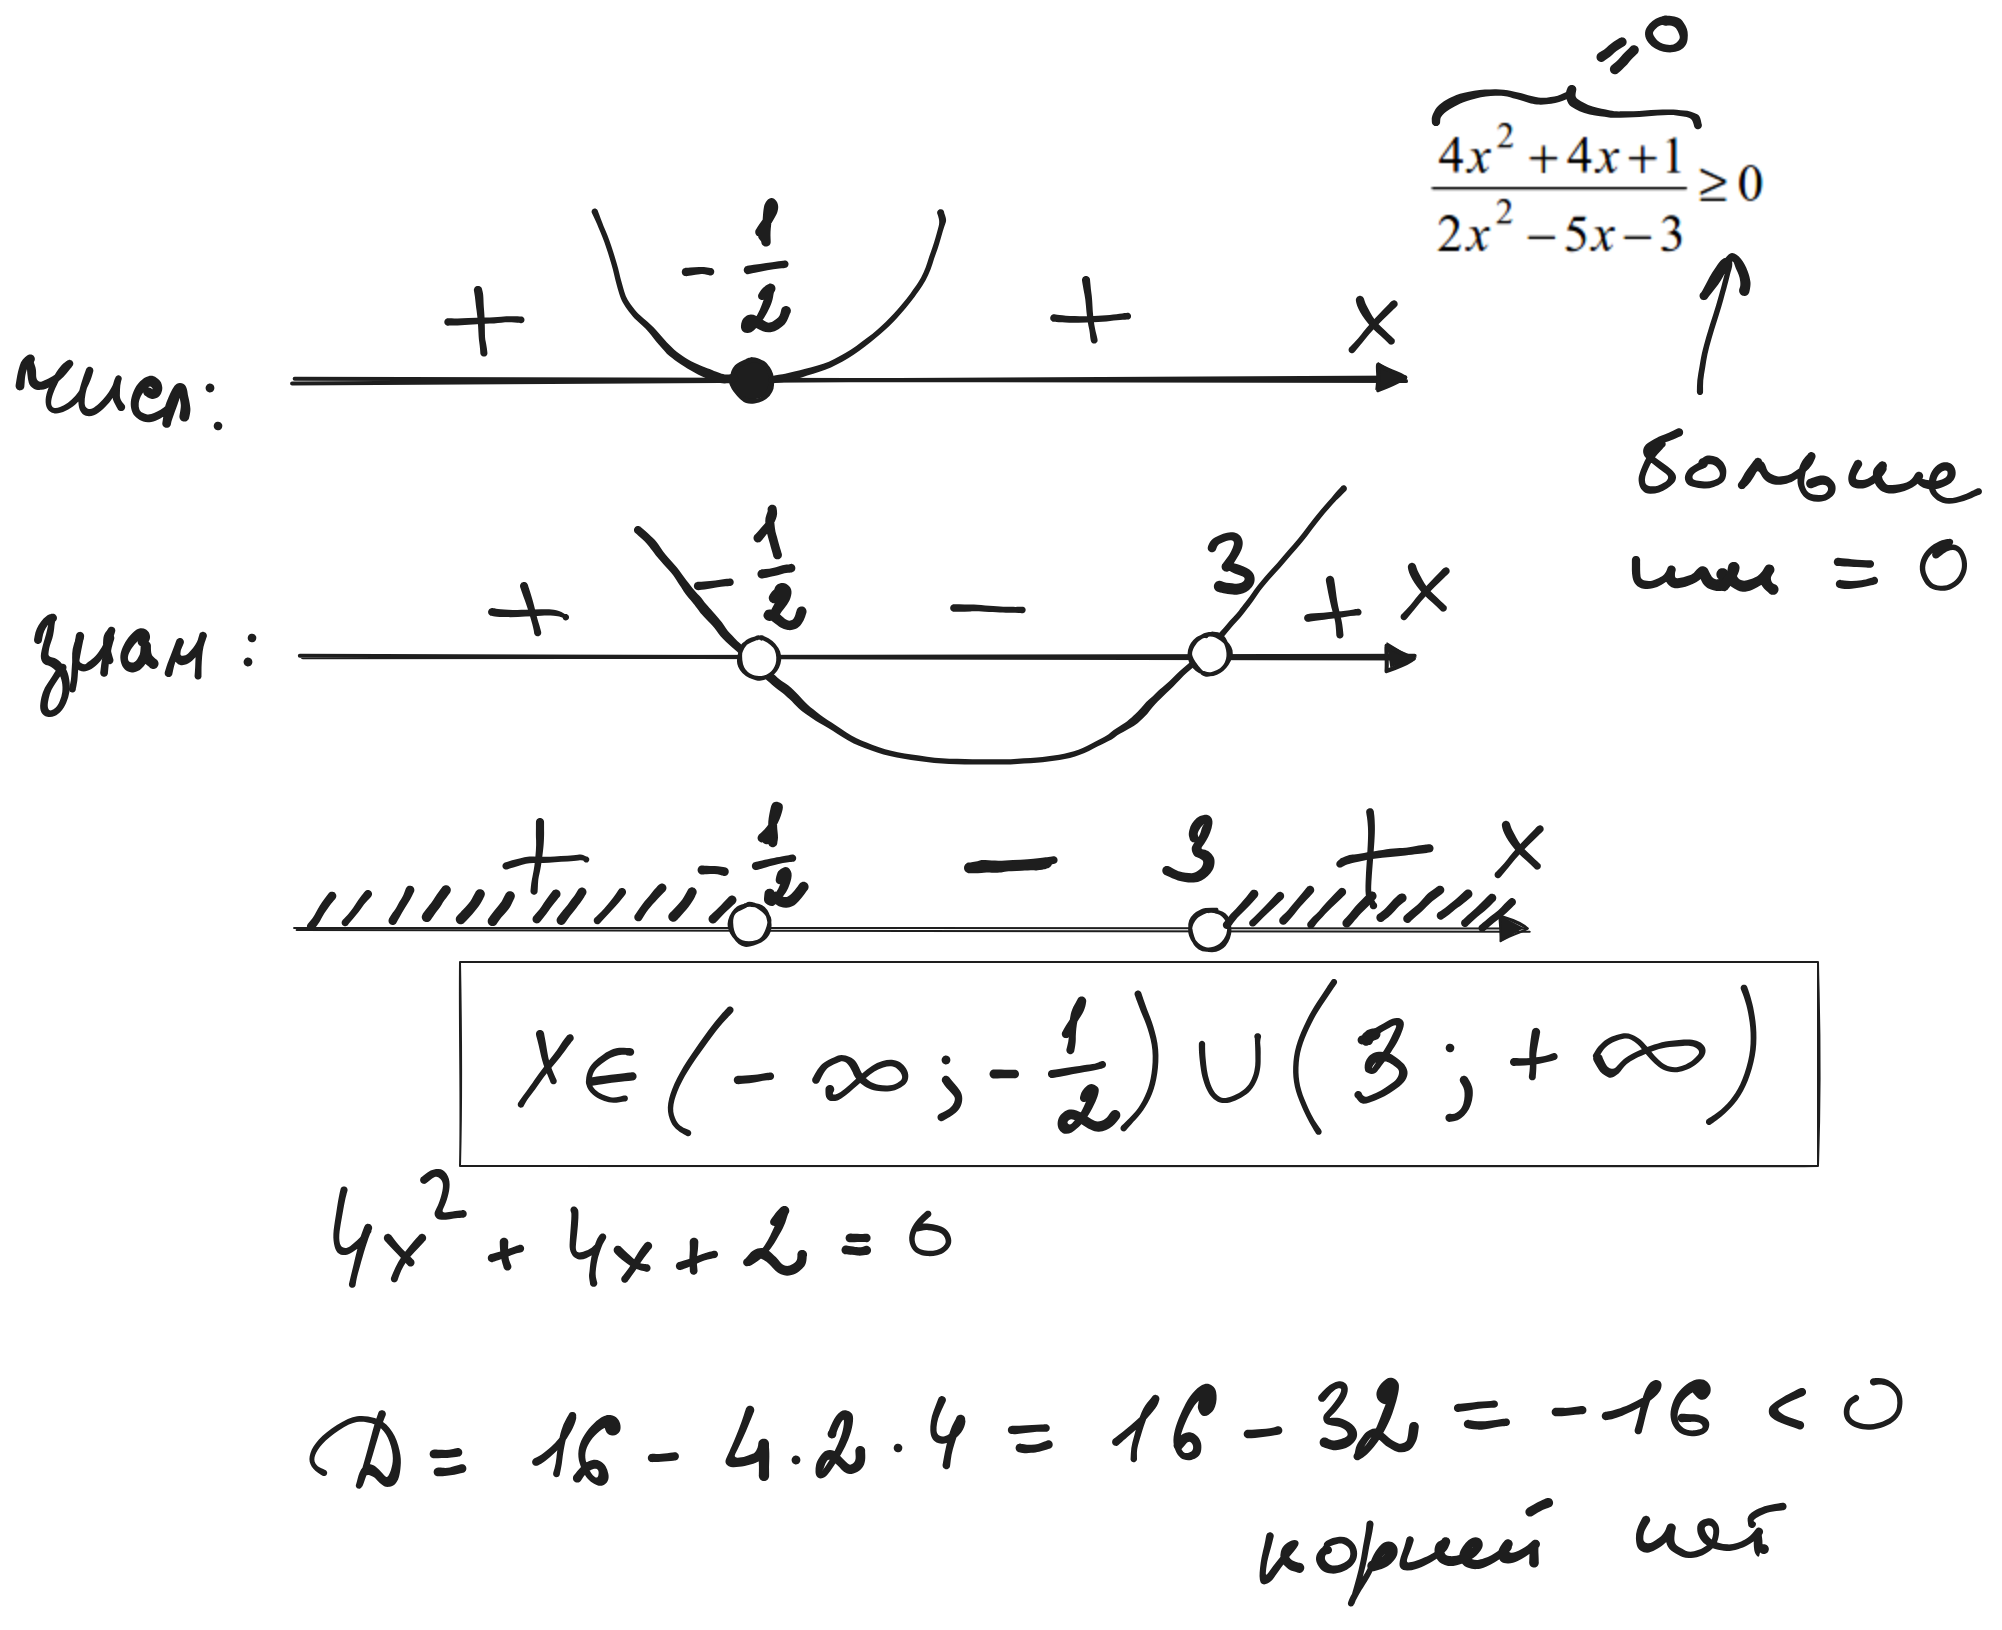 = 0
4x² + 4x + 1
2x² − 5x − 3
≥ 0
больше
или = 0
числ:
+ - 1/2 + x
знам:
+ - 1/2 − 3 + x
+ - 1/2 − 3 + x
x ∈ (- ∞ ; - 1/2) ∪ (3 ; + ∞)
4x² + 4x + 2 = 0
D = 16 - 4 · 2 · 4 = 16 - 32 = -16 < 0
корней нет